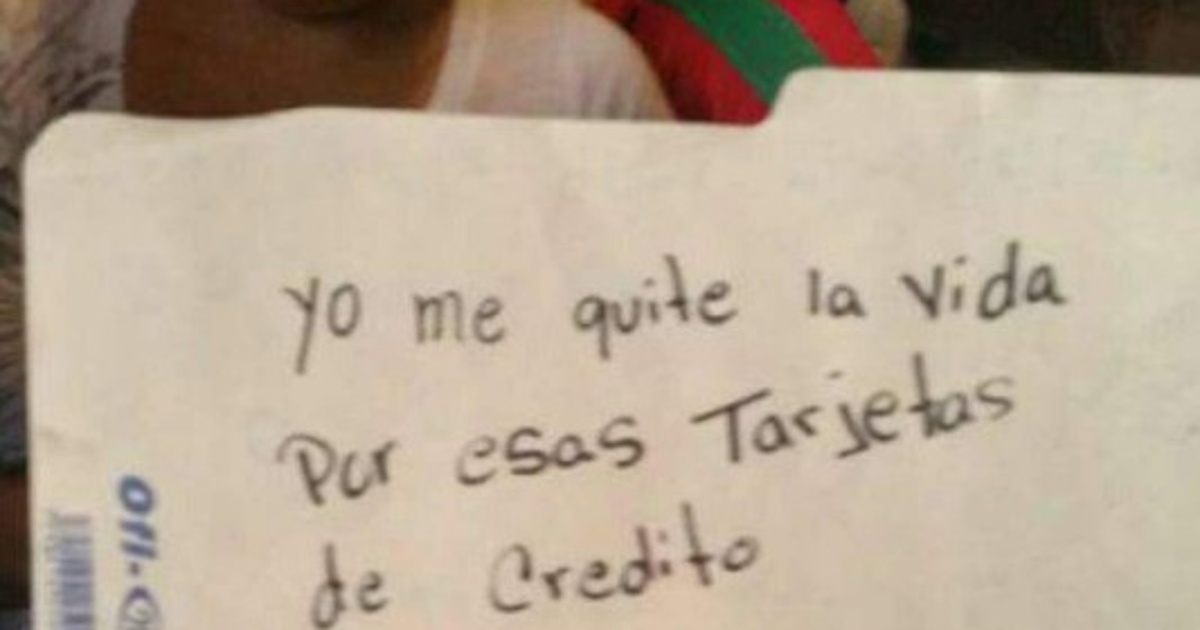 yo me quite la vida
Por esas Tarjetas
de Credito